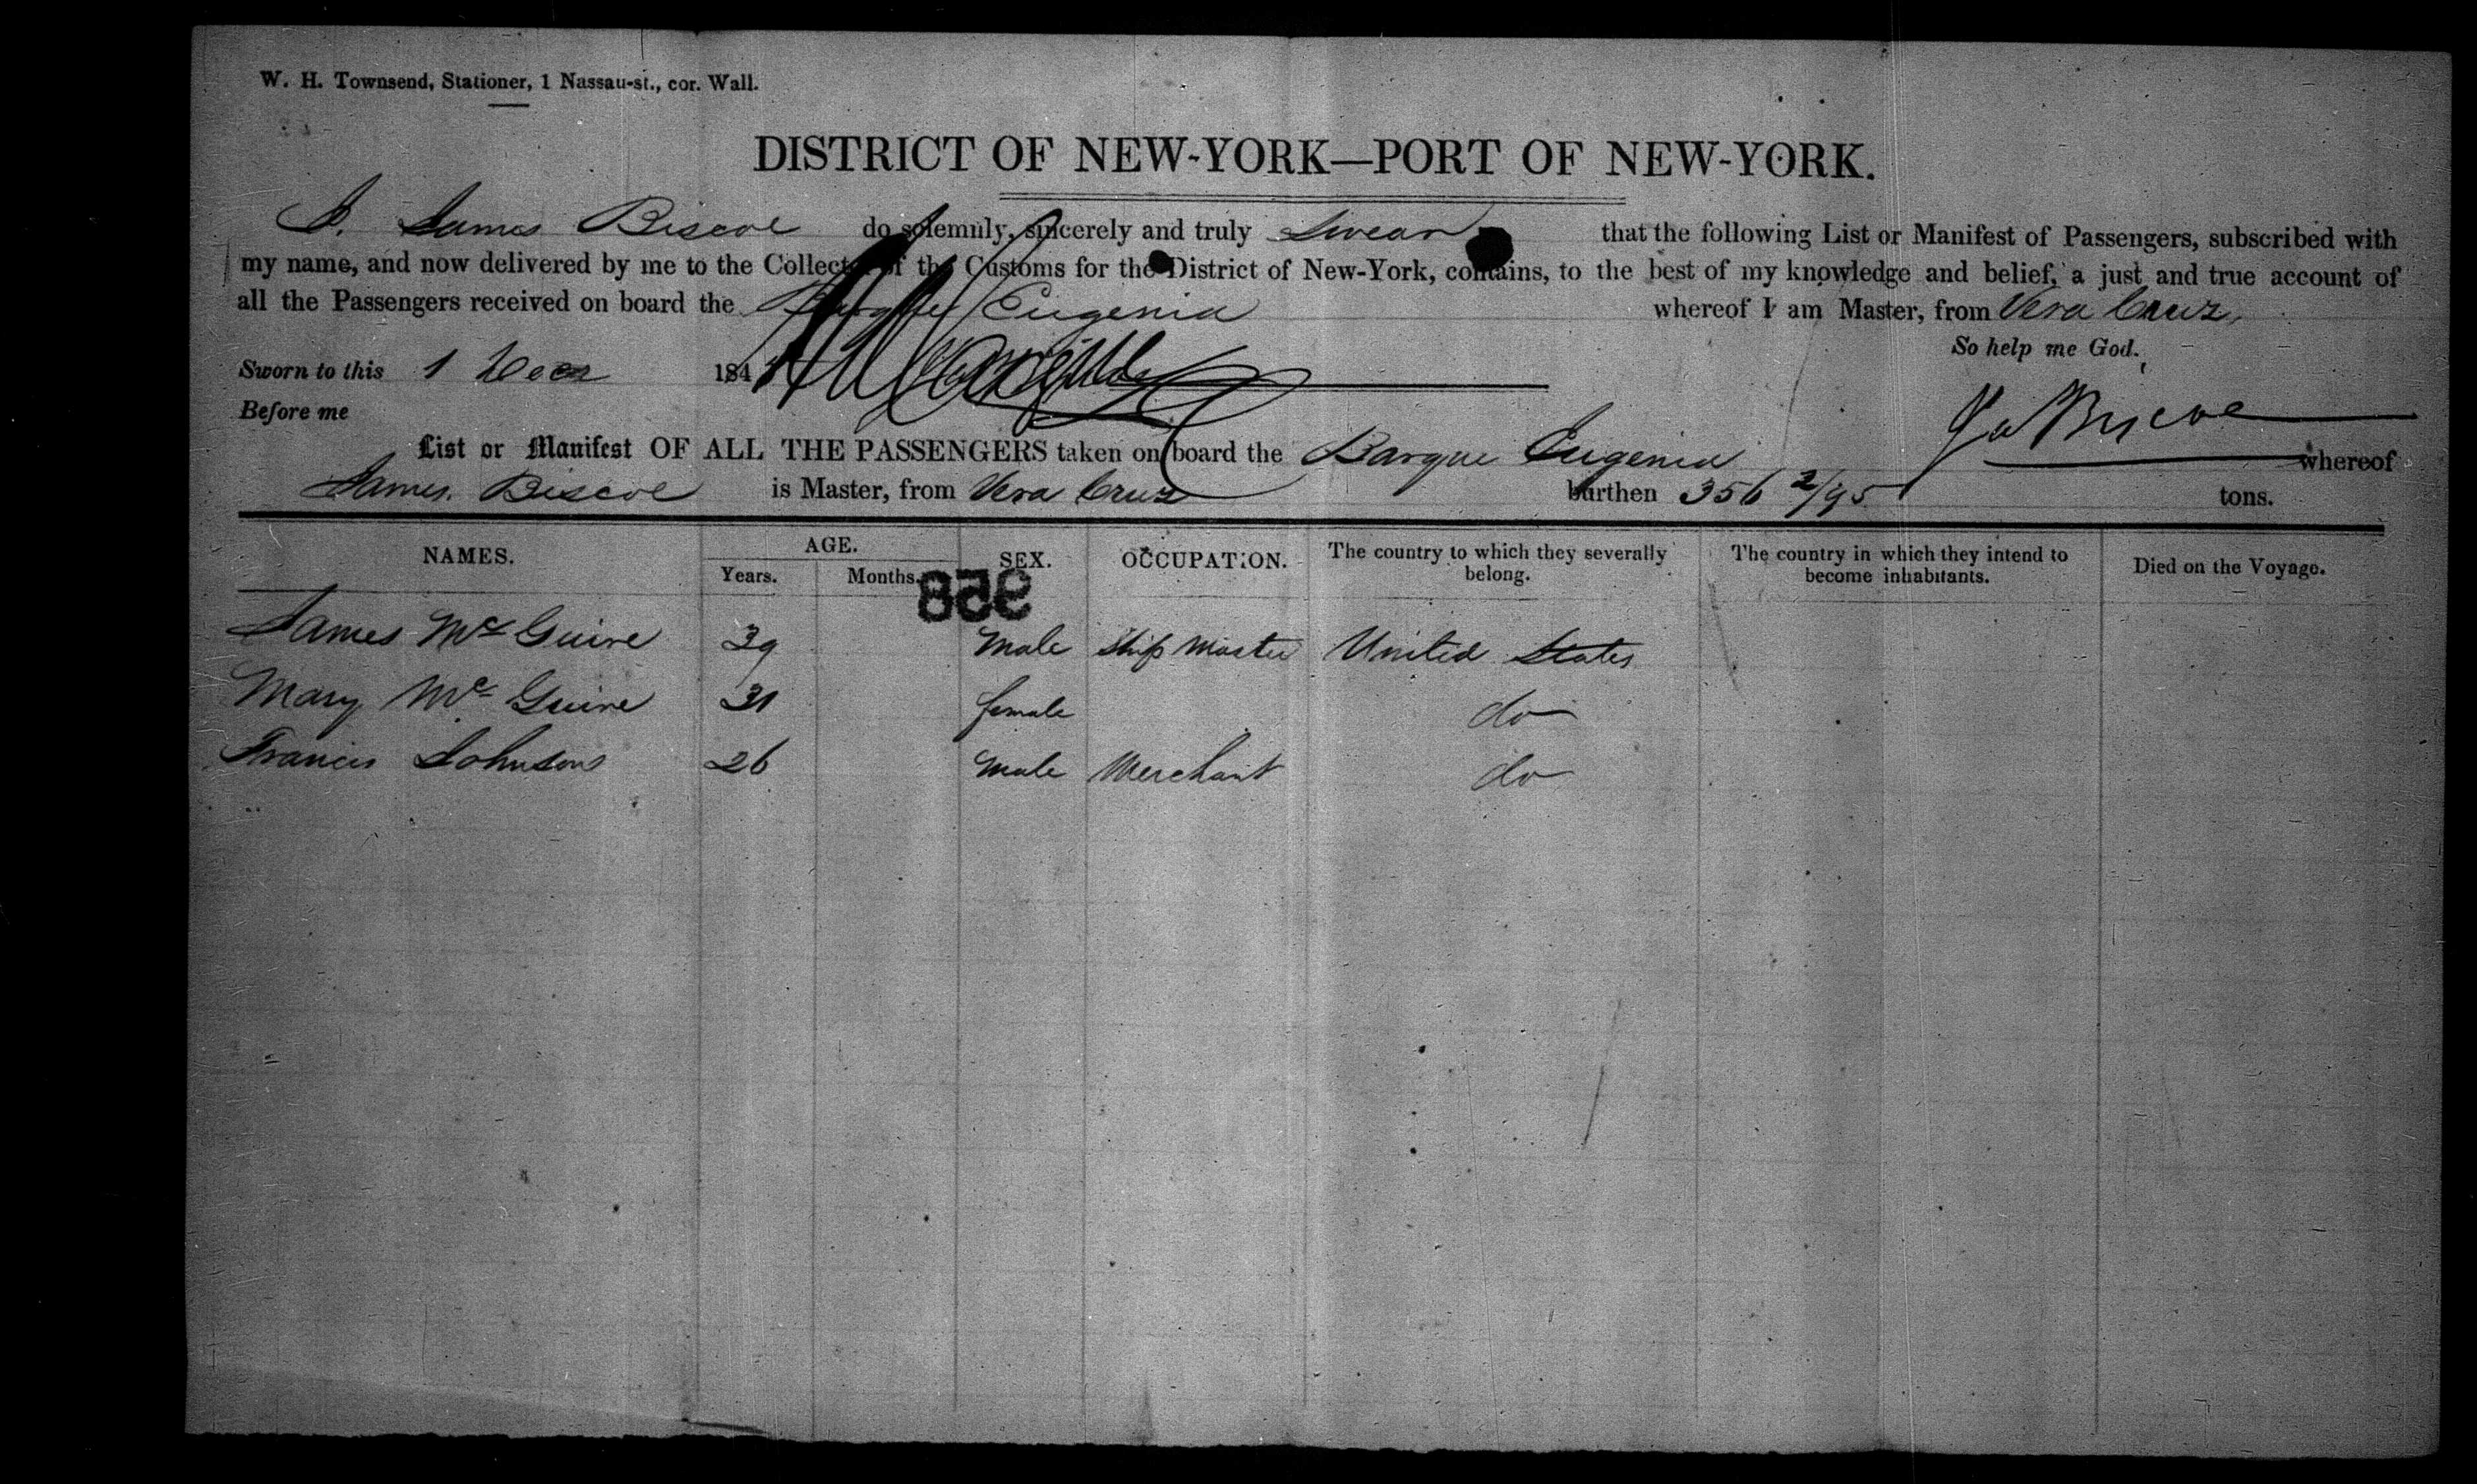 W. H. Townsend, Stationer, 1 Nassau-st., cor. Wall.
DISTRICT OF NEW-YORK—PORT OF NEW-YORK.
I. James Biscoe do solemnly, sincerely and truly Swear that the following List or Manifest of Passengers, subscribed with
my name, and now delivered by me to the Collector of the Customs for the District of New-York, contains, to the best of my knowledge and belief, a just and true account of
all the Passengers received on board the Barque Eugenia whereof I am Master, from Vera Cruz,
So help me God.
Sworn to this 1 Decr 184
Jas Biscoe
Before me
List or Manifest OF ALL THE PASSENGERS taken on board the Barque Eugenia whereof
James Biscoe is Master, from Vera Cruz burthen 356 2/95 tons.
NAMES. AGE. SEX. OCCUPATION. The country to which they severally belong. The country in which they intend to become inhabitants. Died on the Voyage.
Years. Months.
958
James Mc Guire 39 Male Ship Master United States
Mary Mc Guire 31 female do
Francis Johnson 26 Male Merchant do